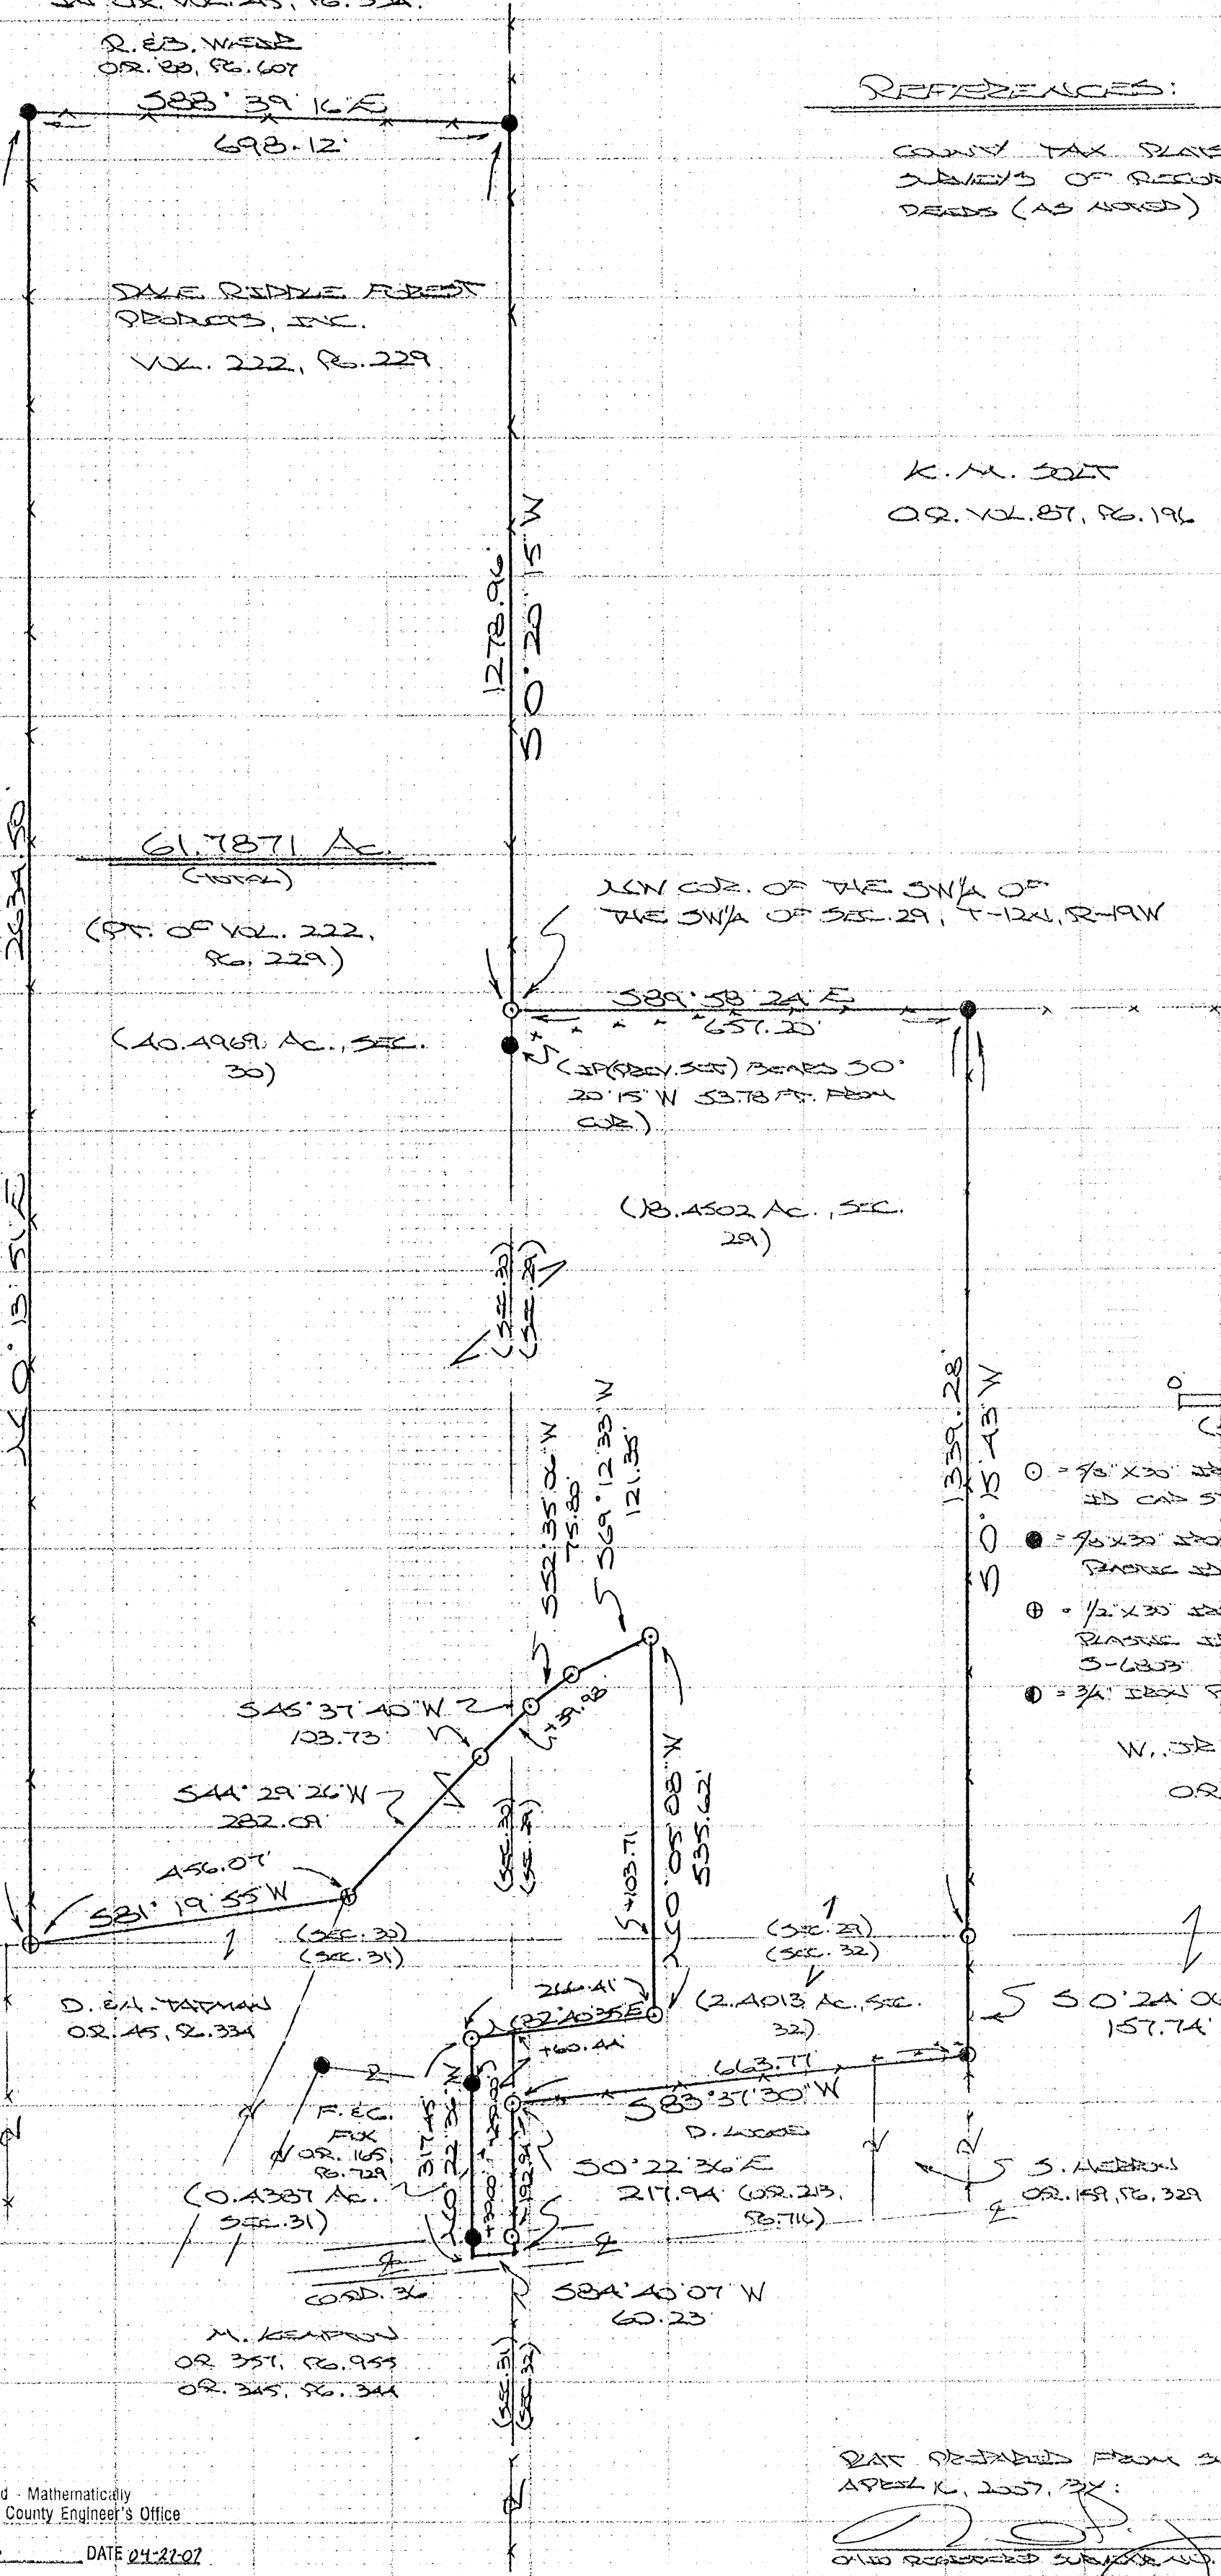 R. & B. WEBB
O.R. 88, PG. 607
S88° 39' 16" E
698.12'
REFERENCES:
COUNTY TAX PLATS
SURVEYS OF RECOR
DEEDS (AS NOTED)
DALE RIDDLE FOREST
PRODUCTS, INC.
VOL. 222, PG. 229
K. M. SOLT
O.R. VOL. 87, PG. 196
1278.96'
S 0° 20' 15" W
61.7871 AC.
(TOTAL)
(PT. OF VOL. 222,
PG. 229)
(40.4969 AC., SEC.
30)
NW COR. OF THE SW/4 OF
THE SW/4 OF SEC. 29, T-12N, R-19W
S89° 58' 24" E
657.20'
(IP(PREV. SET) BEARS S0°
20' 15" W 53.78 FT. FROM
COR.)
(18.4502 AC., SEC.
29)
2634.50'
N 0° 13' 51" E
(SEC. 30)
(SEC. 29)
S52° 35' 06" W
75.80'
S69° 12' 33" W
121.35'
1339.28'
S 0° 15' 43" W
0
= 5/8" X 30"
ID CAP
= 5/8" X 30"
PLASTIC
= 1/2" X 30"
PLASTIC
S-6803
= 3/4" IRON
S45° 37' 40" W
103.73'
S44° 29' 26" W
282.09'
456.07'
S81° 19' 55" W
(SEC. 30)
(SEC. 29)
+103.71
N 0° 05' 08" W
535.62'
(SEC. 30)
(SEC. 31)
(SEC. 29)
(SEC. 32)
D. & H. TATMAN
O.R. 45, PG. 334
266.41'
+60.44
(2.4013 AC., SEC.
32)
S 0° 24' 0
157.74'
663.77'
S83° 37' 30" W
D. LUCAS
F. & C.
FIX
O.R. 165,
PG. 729
(0.4387 AC.
SEC. 31)
S0° 22' 36" E
217.94' (O.R. 213,
PG. 716)
S. HERRON
O.R. 159, PG. 329
CO. RD. 36
S84° 40' 07" W
60.23'
M. KEMPTON
O.R. 357, PG. 955
O.R. 345, PG. 344
(SEC. 31)
(SEC. 32)
PLAT PREPARED FROM
APRIL 16, 2007, BY:
OHIO REGISTERED SURVEYOR NO.
d - Mathematically
County Engineer's Office
DATE 04-27-07